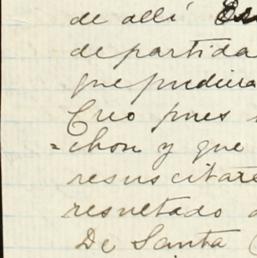 de allí
departida
que pudiera
Creo pues
=chon y que
resuscitare
resultado
De Santa